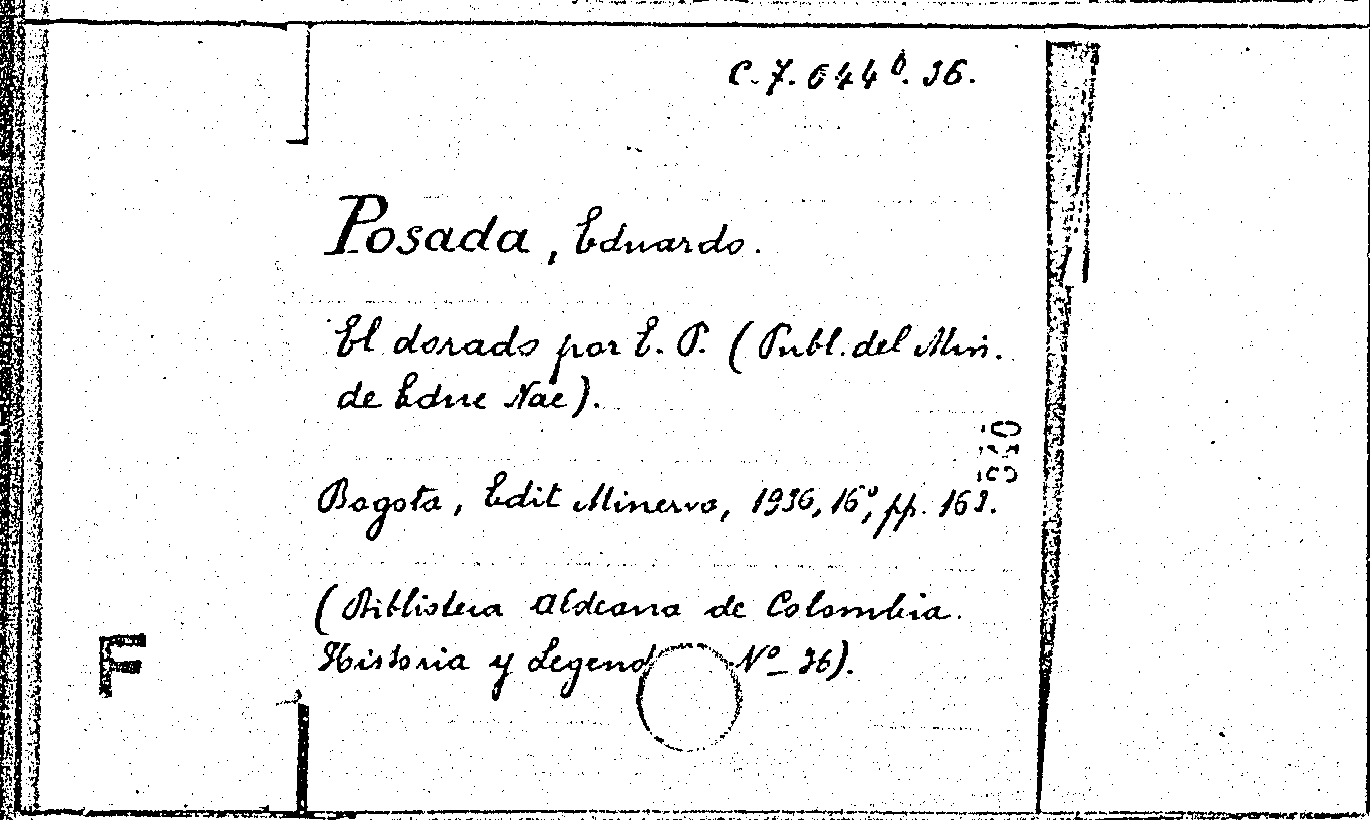 C.7.644ᵇ.36.
Posada, Eduardo.
El dorado por E. P. (Publ. del Min.
de Educ Nac).
Bogota, Edit Minerva, 1936, 16°, pp. 163.
(Biblioteca Aldeana de Colombia.
Historia y Legend Nº 36).
F